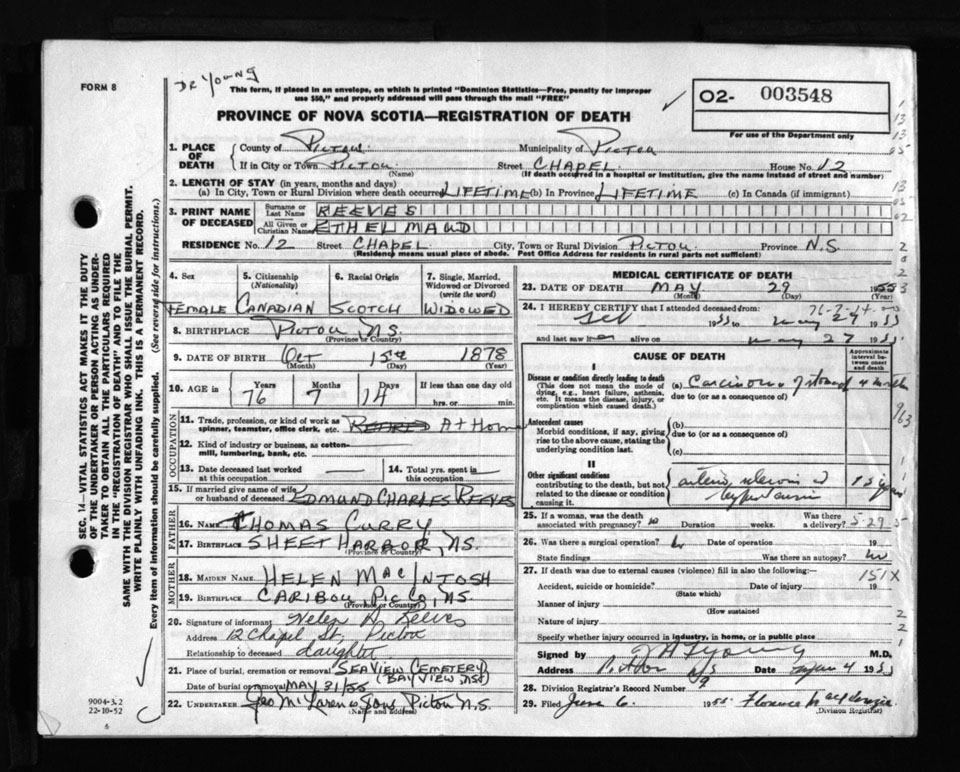 FORM 8
DR YOUNG
This form, if placed in an envelope, on which is printed "Dominion Statistics—Free, penalty for improper
use $50," and properly addressed will pass through the mail "FREE"
PROVINCE OF NOVA SCOTIA—REGISTRATION OF DEATH
02- 003548
For use of the Department only
1. PLACE OF DEATH
County of Pictou Municipality of Pictou
If in City or Town PICTOU (Name) Street CHAPEL House No. 12
(If death occurred in a hospital or institution, give the name instead of street and number)
2. LENGTH OF STAY (in years, months and days)
(a) In City, Town or Rural Division where death occurred LIFETIME (b) In Province LIFETIME (c) In Canada (if immigrant)
3. PRINT NAME OF DECEASED
Surname or Last Name REEVES
All Given or Christian Names ETHEL MAUD
RESIDENCE No. 12 Street CHAPEL City, Town or Rural Division PICTOU Province N.S.
(Residence means usual place of abode. Post Office Address for residents in rural parts not sufficient)
4. Sex
FEMALE
5. Citizenship (Nationality)
CANADIAN
6. Racial Origin
SCOTCH
7. Single, Married, Widowed or Divorced (write the word)
WIDOWED
8. BIRTHPLACE PICTOU N.S.
(Province or Country)
9. DATE OF BIRTH Oct 15th 1878
(Month) (Day)
10. AGE in
Years Months Days If less than one day old
76 7 14 hrs. or min.
OCCUPATION
11. Trade, profession, or kind of work as
spinner, teamster, office clerk, etc. RETIRED AT HOME
12. Kind of industry or business, as cotton-
mill, lumbering, bank, etc.
13. Date deceased last worked
at this occupation
14. Total yrs. spent in
this occupation
15. If married give name of wife
or husband of deceased EDMUND CHARLES REEVES
FATHER
16. Name THOMAS CURRY
17. Birthplace SHEET HARBOR, NS.
(Province or Country)
MOTHER
18. Maiden Name HELEN MACINTOSH
19. Birthplace CARIBOU, PIC CO, NS.
(Province or Country)
20. Signature of informant Helen A Reeves
Address 12 Chapel St, Pictou
Relationship to deceased daughter
21. Place of burial, cremation or removal SEAVIEW CEMETERY
(BAYVIEW, NS)
Date of burial or removal MAY 31/55
22. Undertaker Geo McLaren & Sons Pictou N.S.
(Name and Address)
MEDICAL CERTIFICATE OF DEATH
23. DATE OF DEATH MAY 29 1955
(Month) (Day) (Year)
76-7-14
24. I HEREBY CERTIFY that I attended deceased from:
Feb 1955 to May 29 1955
and last saw her alive on May 27 1955
CAUSE OF DEATH
Approximate interval between onset and death
I
Disease or condition directly leading to death
(This does not mean the mode of
dying, e.g., heart failure, asthenia,
etc. It means the disease, injury, or
complication which caused death.)
(a) Carcinoma of stomach 4 months
due to (or as a consequence of)
Antecedent causes
Morbid conditions, if any, giving
rise to the above cause, stating the
underlying condition last.
(b)
due to (or as a consequence of)
(c)
II
Other significant conditions
contributing to the death, but not
related to the disease or condition
causing it.
arterio sclerosis &
hypertension
15 years
25. If a woman, was the death
associated with pregnancy? no Duration weeks. Was there
a delivery? 5-29-5
26. Was there a surgical operation? no Date of operation 19
State findings Was there an autopsy? no
27. If death was due to external causes (violence) fill in also the following:—
151X
Accident, suicide or homicide? Date of injury 19
(State which)
Manner of injury
(How sustained
Nature of injury
Specify whether injury occurred in industry, in home, or in public place
Signed by Young M.D.
Address Pictou NS Date June 4 1955
28. Division Registrar's Record Number 49
29. Filed June 6 1955 Florence MacKenzie
(Division Registrar)
SEC. 14—VITAL STATISTICS ACT MAKES IT THE DUTY
OF THE UNDERTAKER OR PERSON ACTING AS UNDER-
TAKER TO OBTAIN ALL THE PARTICULARS REQUIRED
IN THE "REGISTRATION OF DEATH" AND TO FILE THE
SAME WITH THE DIVISION REGISTRAR WHO SHALL ISSUE THE BURIAL PERMIT.
WRITE PLAINLY WITH UNFADING INK. THIS IS A PERMANENT RECORD.
Every item of information should be carefully supplied. (See reverse side for instructions.)
9004-3.2
22-10-52
6